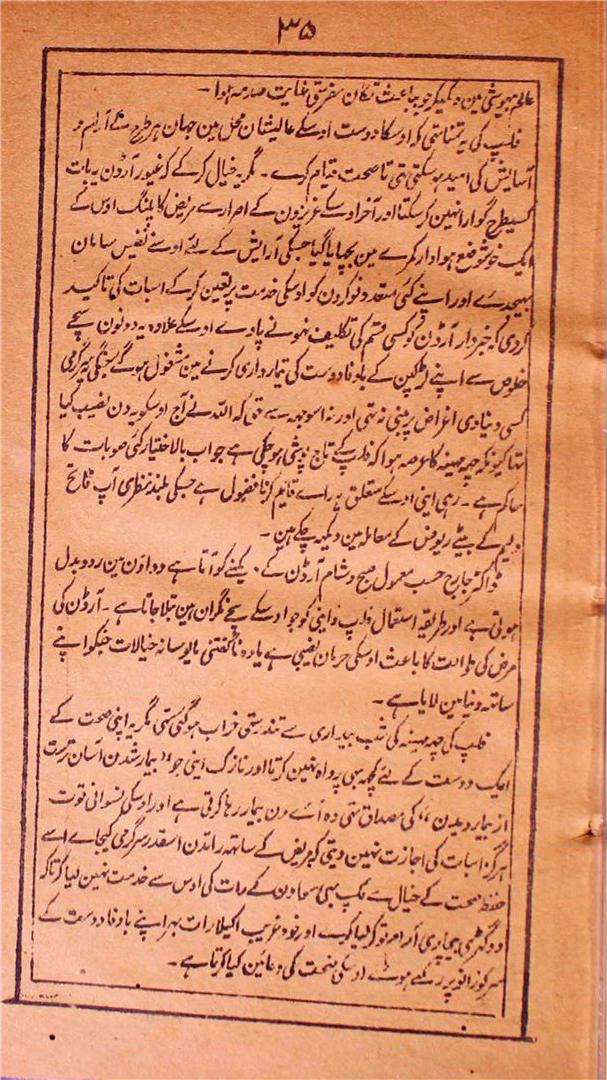 ۳۵
عالم بیہوشی مین دیکھکر جو بباعث تکان سفر تھی غایت صدمہ ہوا۔
فلپ کی یہ تمنا تھی کہ اوسکا دوست اوسکے عالیشان محل مین جہان ہر طرح سے آرام و
آسایش کی امید ہو سکتی تھی تا صحت قیام کرے۔ مگر یہ خیال کرکے کہ غیور آرڈن یہ بات
کسیطرح گوارا نہین کر سکتا اور آخر اوسکے عزیزون کے اصرار سے مریض کا پلنگ اوس کے
ایک خوشوضع ہوادار کمرے مین بچھایا گیا جسکی آرایش کے لئے اوسنے نفیس سامان
بھیجدئے اور اپنے کئی متعدد نوکرون کو اوسکی خدمت پر تعین کرکے اسبات کی تاکید
کردی کہ خبردار آرڈن کو کسی قسم کی تکلیف نہونے پاوے اوسکے علاوہ یہ دونون سچے
خلوص سے اپنے لڑکپن کے باوفا دوست کی تیمارداری کرنے مین مشغول ہوگئے جنکی سرگرمی
کسی دنیاوی اغراض پر مبنی نہ تھی اور نہ اسوجہ سے تھی کہ اللہ نے آج اوسکو یہ دن نصیب کیا
تھا کیونکہ چھہ مہینہ کا عرصہ ہوا کہ فلپ کے تاج پوشی ہو چکی ہے جو اب بالاختیار کئی صوبات کا
حاکم ہے۔ رہی اینی اوسکے متعلق یہ راے قایم کرنا فضول ہے جسکی بلند نظری آپ فاتح
ولیم کے بیٹے ریوفس کے معاملہ مین دیکھہ چکے ہین۔
ڈاکٹر جارج حسب معمول صبح و شام آرڈن کے دیکھنے کو آتا ہے دواؤن مین ردوبدل
ہوتی ہے اور طریقہ استعمال فلپ و اینی کو جو اوسکے سچے نگران ہین بتلا جاتا ہے۔ آرڈن کی
مرض کی طوالت کا باعث اوسکی حرمان نصیبی ہے یا وہ ناگفتنی مایوسانہ خیالات جنکو اپنے
ساتھہ دنیا مین لایا ہے۔
فلپ کی چھہ مہینہ کی شب بیداری سے تندرستی خراب ہوگئی تھی مگر یہ اپنی صحت کے
ایک دوست کے لئے کچھہ بھی پرواہ نہین کرتا اور نازک اینی جو "بیمار شدن آسان ترست
از بیمار دیدن" کی مصداق تھی وہ آئے دن بیمار رہا کرتی ہے اور اوسکی نسوانی قوت
ہرگز اسبات کی اجازت نہین دیتی کہ مریض کے ساتھہ راتدن اسقدر سرگرمی کیجاے اسے
حفظ صحت کے خیال سے فلپ بھی سوا دن کے رات کی اوس سے خدمت نہین لیا کرتا کہ
دو گھڑی بیچاری آرام تو کر لیا کرے اور خود غریب اکیلا رات بھر اپنے باوفا دوست کے
سر کو زانو پر رکھے ہوئے اوسکی صحت کی دعائین کیا کرتا ہے۔